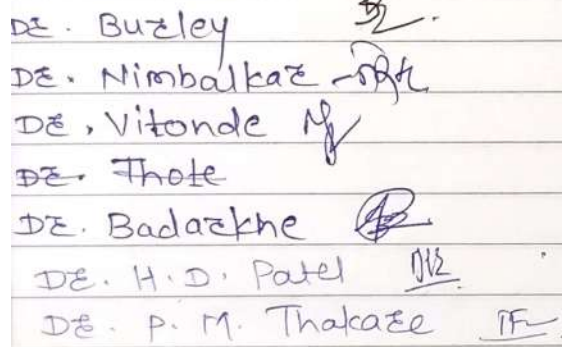 Dr. Burley
Dr. Nimbalkar
Dr. Vitonde
Dr. Thote
Dr. Badarkhe
Dr. H. D. Patel
Dr. P. M. Thakare